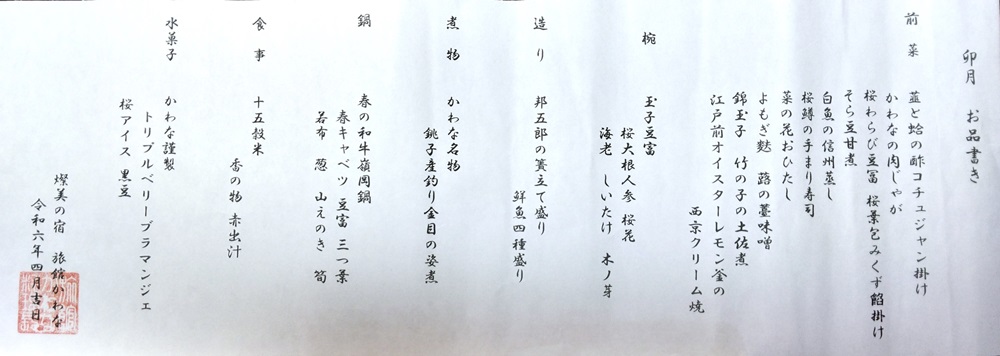 卯月 お品書き
前菜
韮と蛤の酢コチュジャン掛け
かわなの肉じゃが
桜わらび豆冨 桜葉包みくず餡掛け
そら豆甘煮
白魚の信州蒸し
桜鱒の手まり寿司
菜の花おひたし
よもぎ麩 蕗の薹味噌
錦玉子 竹の子の土佐煮
江戸前オイスターレモン釜の
西京クリーム焼
椀
玉子豆富
桜大根人参 桜花
海老 しいたけ 木ノ芽
造り
邦五郎の簀立て盛り
鮮魚四種盛り
煮物
かわな名物
銚子産釣り金目の姿煮
鍋
春の和牛嶺岡鍋
春キャベツ 豆富 三つ葉
若布 葱 山えのき 筍
食事
十五穀米
香の物 赤出汁
水菓子
かわな謹製
トリプルベリーブラマンジェ
桜アイス 黒豆
燦美の宿 旅館かわな
令和六年四月吉日